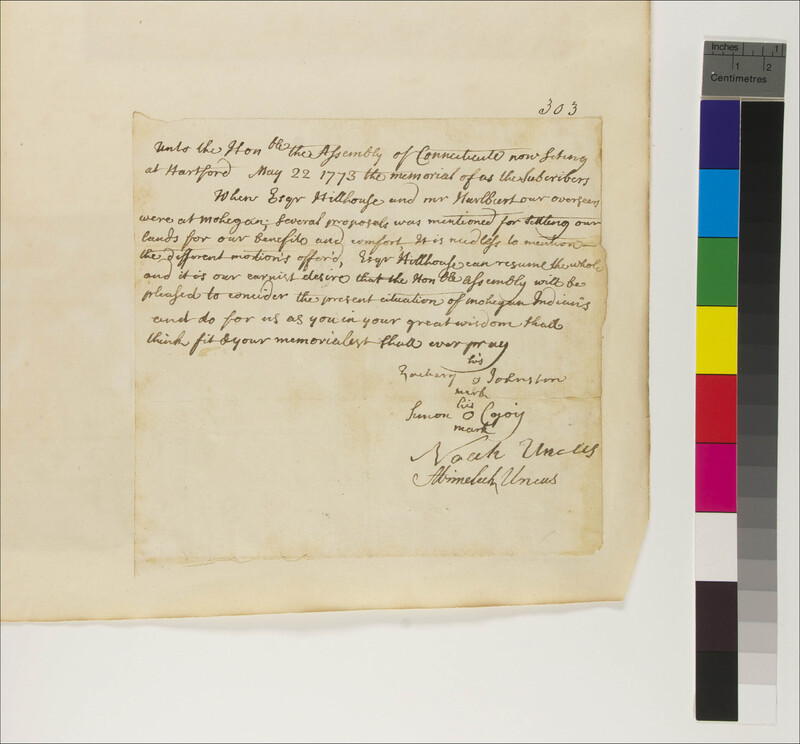 303
unto the Honble the Assembly of Connecticutt now Siting
at Hartford May 22 1773 the memorial of us the Subcribers
When Esqr Hillhouse and mr Hurlburt our overseers
were at mohegan; Several proposals was mentioned for Settling our
lands for our benefits and comfort It is needless to mention
the different motion's offer'd, Esqr Hillhouse can resume the whole
and it is our earnist desire that the Honble assembly will be
pleased to concider the present cituation of mohegan Indian's
and do for us as you in your great wisdom shall
think fit & your memorialest shall ever pray
his
Zachary o Johnston
mark
his
Simon o Cojoy
mark
Noah Uncus
Abimelech Uncus
Inches 1
1 2
Centimetres